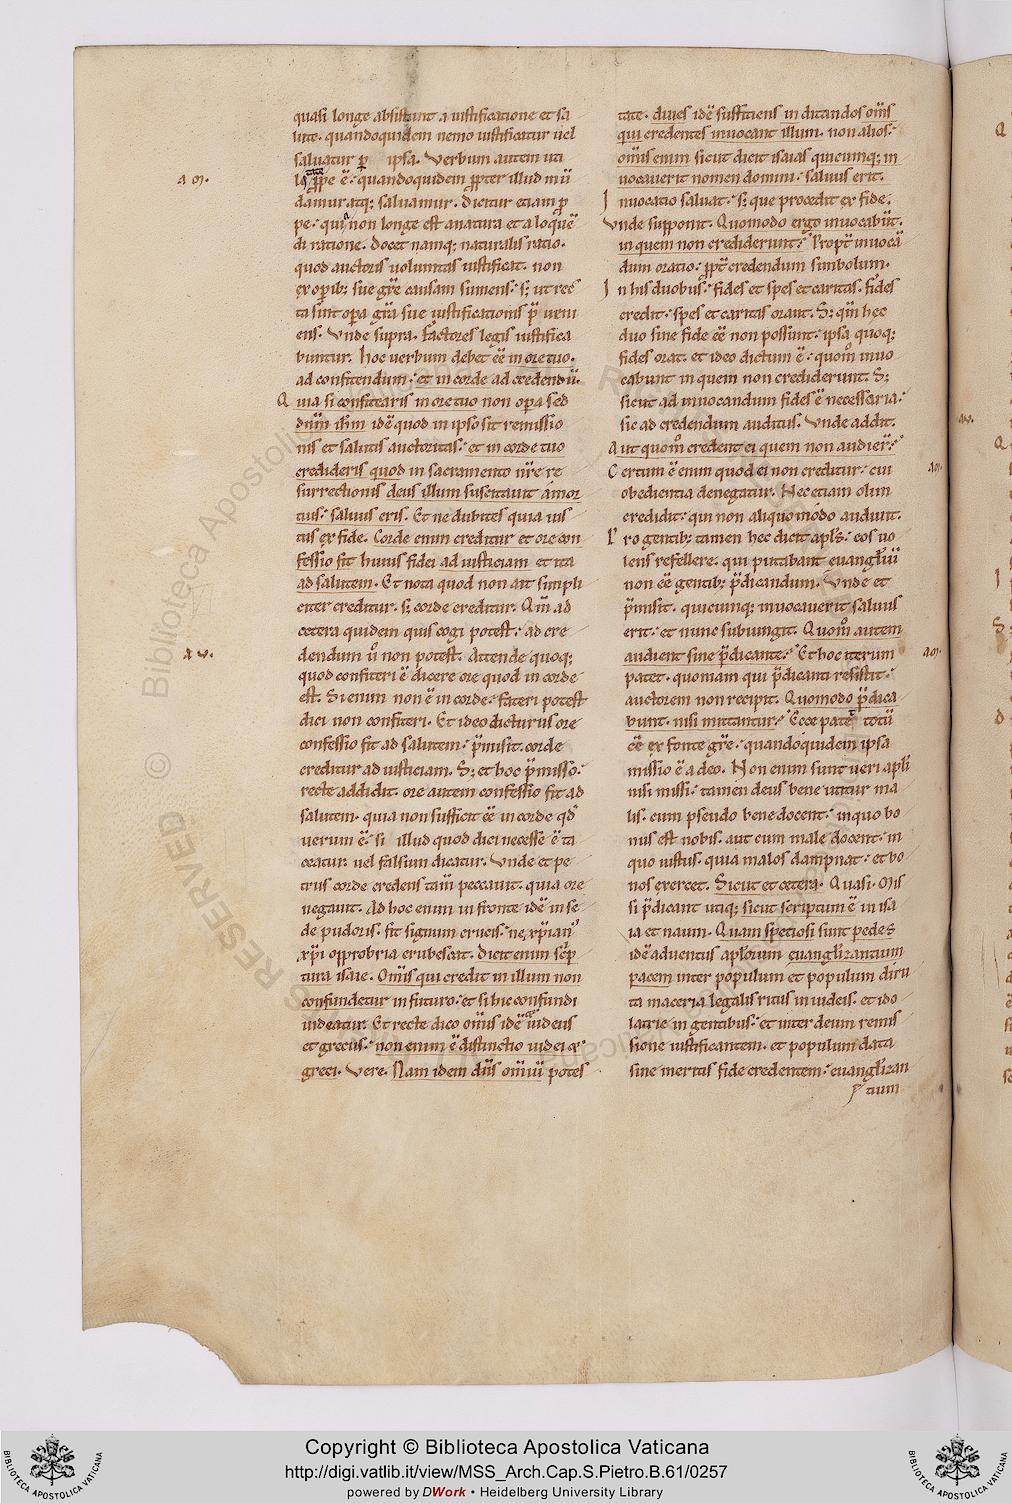 quasi longe absistunt a iustificatione et sa
lute. quandoquidem nemo iustificatur uel
saluatur p̱ ipsa. Verbum autem
ꝓpe ē. quandoquidem ꝓpter illud
damur atq; saluamur. Dicitur etiam ꝓ
pe. quia non longe est a natura et a
di ratione. Docet namq; naturalis ratio.
quod auctoris uoluntas iustificat. non
ex opib; sue gr̄e causam sumens. s; ut rec
ta sint opa gr̄a sue iustificationis p̄ueni
ens. Vnde supra. Factores legis iustifica
buntur. hoc uerbum debet eē in ore tuo.
ad confitendum. et in corde ad credendū.
Quia si confitearis in ore tuo non opa sed
dn̄m ih̄m idē quod in ipso sit remissio
nis et salutis auctoritas. et in corde tuo
credideris quod in sacramento nr̄e re
surrectionis deus illum suscitauit a mor
tuis. saluus eris. Et ne dubites quia ius
tus ex fide. Corde enim creditur et ore con
fessio fit huius fidei ad iusticiam et ita
ad salutem. Et nota quod non ait simpli
citer creditur. s; corde creditur. Qm̄ ad
cetera quidem quis cogi potest. ad cre
dendum ů non potest. Attende quoq;
quod confiteri ē dicere ore quod in corde
est. Si enim non ē in corde. fateri potest
dici non confiteri. Et ideo dicturus ore
confessio fit ad salutem. p̄misit. corde
creditur ad iusticiam. S; et hoc p̄misso.
recte addidit. ore autem confessio fit ad
salutem. quia non sufficit eē in corde qd̓
uerum ē. si illud quod dici necesse ē ta
ceatur. uel falsum dicatur. Vnde et pe
trus corde credens tam̄ peccauit. quia ore
negauit. Ad hoc enim in fronte idē in se
de pudoris. fit signum crucis. ne xp̄ian᾽
xp̄i opprobria erubescat. Dicit enim scͥp
tura isaie. Omnis qui credit in illum non
confundetur in futuro. et si hic confundi
uideatur. Et recte dico omnis idē iudeus
et grecus. non enim ē distinctio iudei et
greci. Vere. Nam idem dn̄s omniū potes
tate. diues idē sufficiens in ditandos om̄s
qui credentes inuocant illum. non alios.
om̄is enim sicut dicit isaias quicumq; in
uocauerit nomen domini. saluus erit.
Inuocatio saluat. s; que procedit ex fide.
Vnde supponit. Quomodo ergo inuocabūt.
in quem non crediderunt. Propt̄ inuocā
dum oratio. ꝓpt̄ credendum simbolum.
In his duobus. fides et spes et caritas. fides
credit. spes et caritas orant. S; qm̄ hec
duo sine fide eē non possunt. ipsa quoq;
fides orat. et ideo dictum ē. quom̊ inuo
cabunt in quem non crediderunt. S;
sicut ad inuocandum fides ē necessaria.
sic ad credendum auditus. Vnde addit.
Aut quom̊ credent ei quem non audier̄.
Certum ē enim quod ei non creditur. cui
obedientia denegatur. Nec etiam olim
credidit. qui non aliquo modo audiuit.
Pro gentib; tamen hec dicit apl̄s. eos uo
lens refellere. qui putabant euangl̄iū
non eē gentib; p̄dicandum. Vnde et
p̄misit. quicumq; inuocauerit saluus
erit. et nunc subiungit. Quom̊ autem
audient sine p̄dicante. Et hoc iterum
patet. quoniam qui p̄dicanti resistit.
auctorem non recipit. Quomodo p̄dica
bunt. nisi mittantur. Ecce patet totū
eē ex fonte gr̄e. quandoquidem ipsa
missio ē a deo. Non enim sunt ueri apl̄i
nisi missi. tamen deus bene utitur ma
lis. cum pseudo bene docent. in quo bo
nus est nobis. aut cum male docent. in
quo iustus. quia malos dampnat. et bo
nos exercet. Sicut et cetera. Quasi. Mis
si p̄dicant utiq; sicut scriptum ē in isa
ia et naum. Quam speciosi sunt pedes
idē aduentus apl̄orum euangl̄izantium
pacem inter populum et populum diru
ta maceria legalis ritus in iudeis. et ido
latrie in gentibus. et inter deum remis
sione iustificantem. et populum data
sine meritis fide credentem. euangl̄izan
tium
Copyright © Biblioteca Apostolica Vaticana
http://digi.vatlib.it/view/MSS_Arch.Cap.S.Pietro.B.61/0257
powered by DWork • Heidelberg University Library